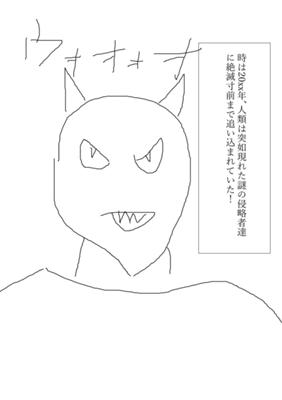 ウォオォオ
時は20xx年、人類は突如現れた謎の侵略者達
に絶滅寸前まで追い込まれていた！